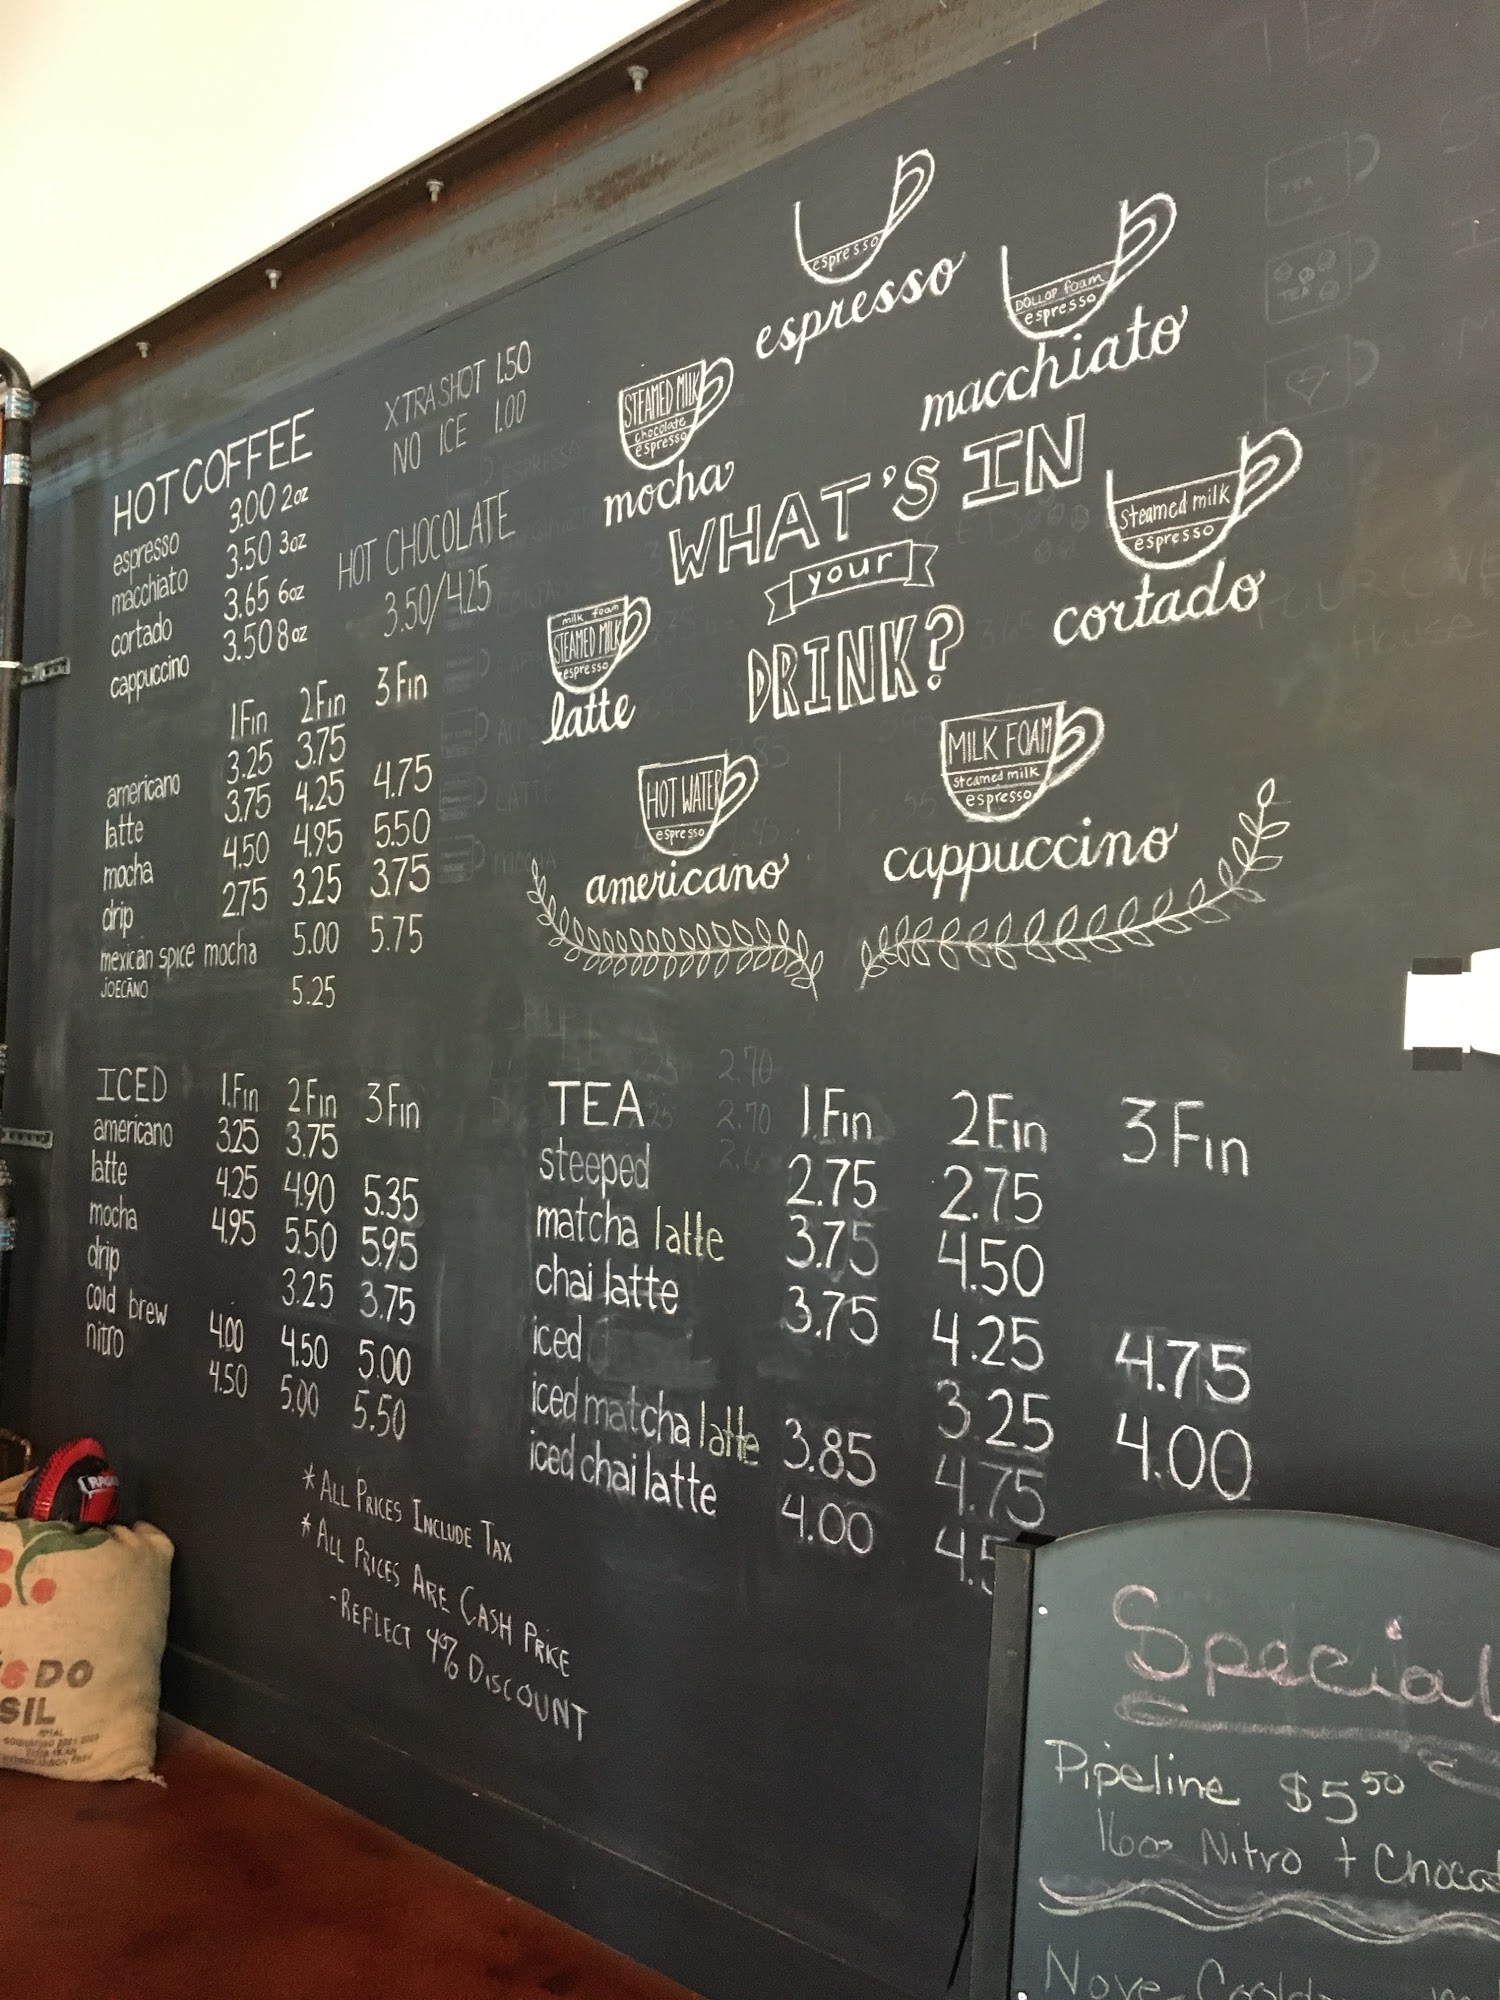 HOT COFFEE
espresso 3.00 2oz
macchiato 3.50 3oz
cortado 3.65 6oz
cappuccino 3.50 8oz
XTRA SHOT 1.50
NO ICE 1.00
HOT CHOCOLATE
3.50/4.25
1Fin 2Fin 3Fin
americano 3.25 3.75
latte 3.75 4.25 4.75
mocha 4.50 4.95 5.50
drip 2.75 3.25 3.75
mexican spice mocha 5.00 5.75
JOECANO 5.25
espresso
espresso
DOLLOP foam
espresso
macchiato
STEAMED MILK
chocolate
espresso
mocha
WHAT'S IN
your
DRINK?
Steamed milk
espresso
cortado
milk foam
STEAMED MILK
espresso
latte
MILK FOAM
steamed milk
espresso
cappuccino
HOT WATER
espresso
americano
ICED 1Fin 2Fin 3Fin
americano 3.25 3.75
latte 4.25 4.90 5.35
mocha 4.95 5.50 5.95
drip 3.25 3.75
cold brew 4.00 4.50 5.00
nitro 4.50 5.00 5.50
TEA 1Fin 2Fin 3Fin
steeped 2.75 2.75
matcha latte 3.75 4.50
chai latte 3.75 4.25 4.75
iced 3.25 4.00
iced matcha latte 3.85 4.75
iced chai latte 4.00 4.5
* ALL PRICES INCLUDE TAX
* ALL PRICES ARE CASH PRICE
- REFLECT 4% DISCOUNT
DO
SIL
Special
Pipeline $5.50
16oz Nitro + Chocola